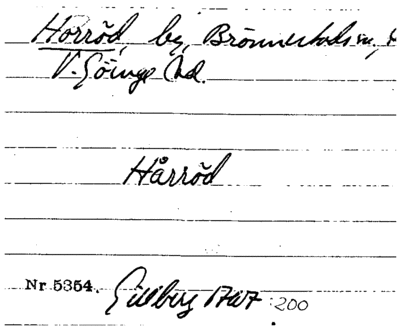 Horröd, by, Brönnestads sn,
V. Göinge hd.
Hårröd
Nr 5354. Gillberg 1767 : 200